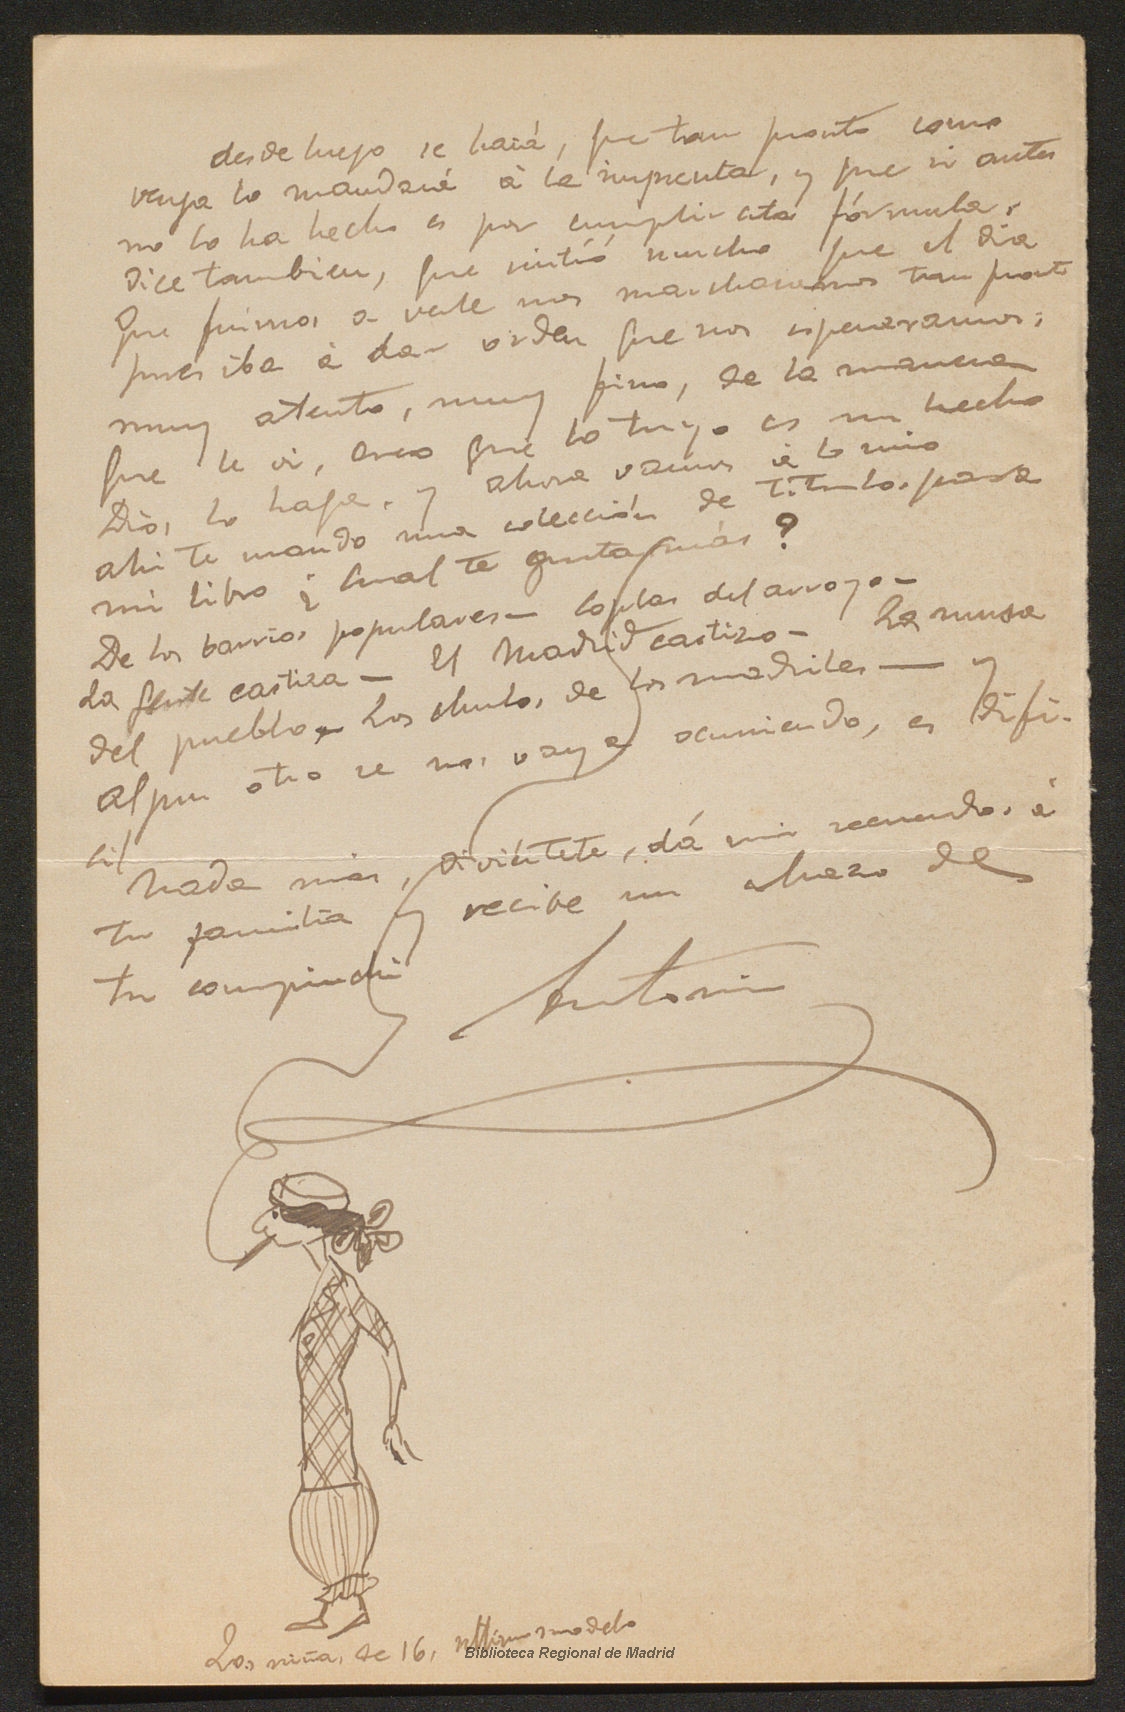 desde luego se hará, que tan pronto como
venga lo mandará á la imprenta, y que si antes
no lo ha hecho es por cumplir esta fórmula,
dice tambien, que sintió mucho que el dia
que fuimos a verle nos marcharamos tan pronto
pues iba á dar orden que nos esperaramos;
muy atento, muy fino, de la manera
que le vi, creo que lo tuyo es un hecho
Dios lo haga. y ahora vamos á lo mio
ahi te mando una colección de titulos para
mi libro ¿Cual te gusta más?
De los barrios populares — Coplas del arroyo —
La gente castiza — El Madrid castizo — La musa
del pueblo — Los chulos de los madriles — y
algun otro se nos vaya ocurriendo, es difi-
cil
Nada más, diviértete, dá mis recuerdos á
tu familia y recibe un abrazo de
tu compinchi
Antonio
Los niñas de 16, ultimo modelo
Biblioteca Regional de Madrid